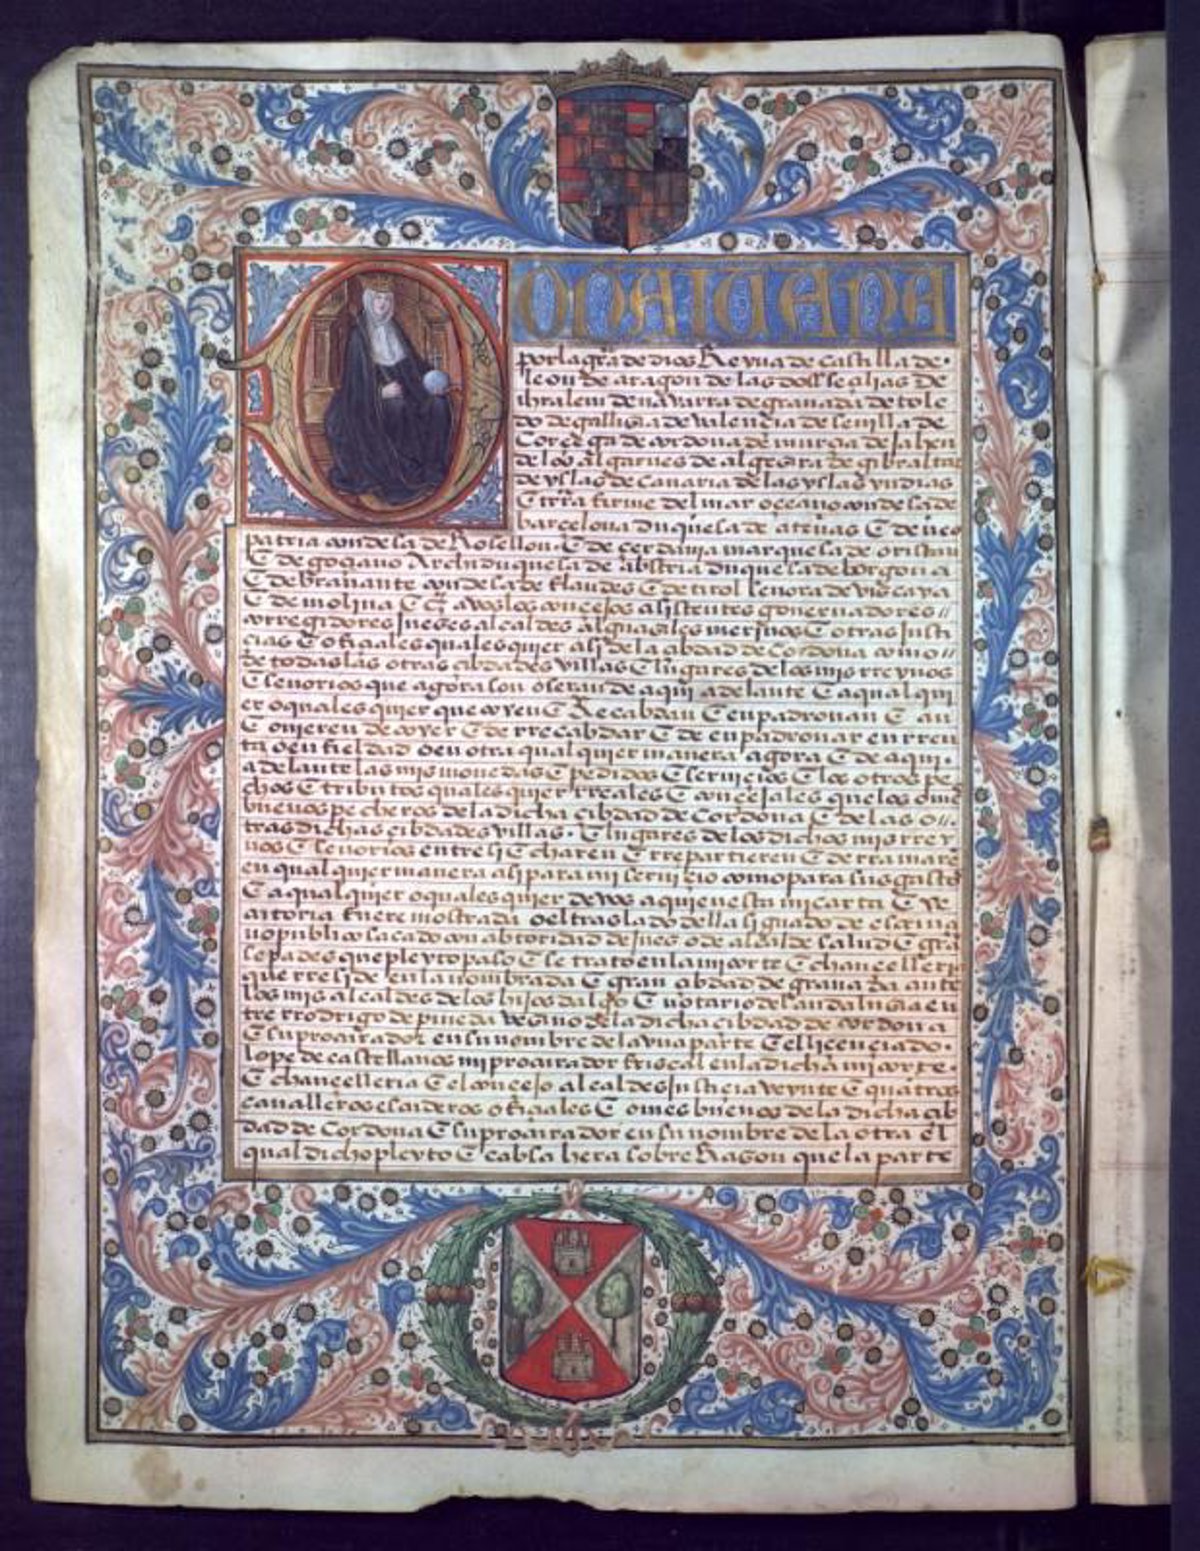 DONA IUANA
por la gr̃a de dios Reyna de castilla de
leon de aragon de las dos seçilias de
ihralem de navarra de granada de tole
do de gallizia de valençia de sevilla de
Corçega de cordova de murçia de jahen
de los algarves de algezira de gibraltar
de yslas de canaria de las yslas yndias
E trr̃a firme del mar oçeano condesa de
barçelona duquesa de atenas E de neo
patria condesa de Rosellon E de çerdania marquesa de oristan
E de goçiano Archiduquesa de abstria duquesa de borgoña
E de bravante condesa de flandes E de tirol señora de vizcaya
E de molina E c̃ a vos los conçejos asistentes governadores
corregidores jueçes alcaldes alguaziles merinos E otras justi
çias E ofiçiales qualesquier asi de la çibdad de Cordova como
de todas las otras çibdades villas E lugares de los mis rreynos
E señorios que agora son o seran de aqui adelante E a qual qui
er o quales quier que cojen E Recabdan E enpadronan E an
E ovieren de cojer E de rrecabdar E de enpadronar en rren
ta o en fieldad o en otra qual quier manera agora E de aqui
adelante las mis monedas E pedidos E serviçios E los otros pe
chos E tributos quales quier rreales E conçejales que los om̃es
buenos pecheros de la dicha çibdad de Cordova E de las o
tras dichas çibdades villas E lugares de los dichos mis rrey
nos E señorios entre si E charen E rrepartieren E derramaren
en qual quier manera asi para mi serviçio como para sus gastos
E a qual quier o quales quier de vos a quien esta mi carta E xe
cutoria fuere mostrada o el traslado della signado de escriva
no publico sacado con abtoridad de juez o de alcalde salud E gr̃a
sepades que pleyto paso E se trato en la mi corte E chançilleria
que rreside en la nombrada E gran çibdad de granada ante
los mis alcaldes de los hijos dalgo E notario del andaluzia en
tre rrodrigo de pineda vezino de la dicha çibdad de cordova
E su procurador en su nombre de la una parte E el liçençiado
lope de castellanos mi procurador fiscal en la dicha mi corte
E chançelleria E el conçejo alcaldes justiçia veynte E quatros
cavalleros escuderos ofiçiales E omes buenos de la dicha çib
dad de Cordova E su procurador en su nombre de la otra el
qual dicho pleyto E cabsa hera sobre Razon que la parte